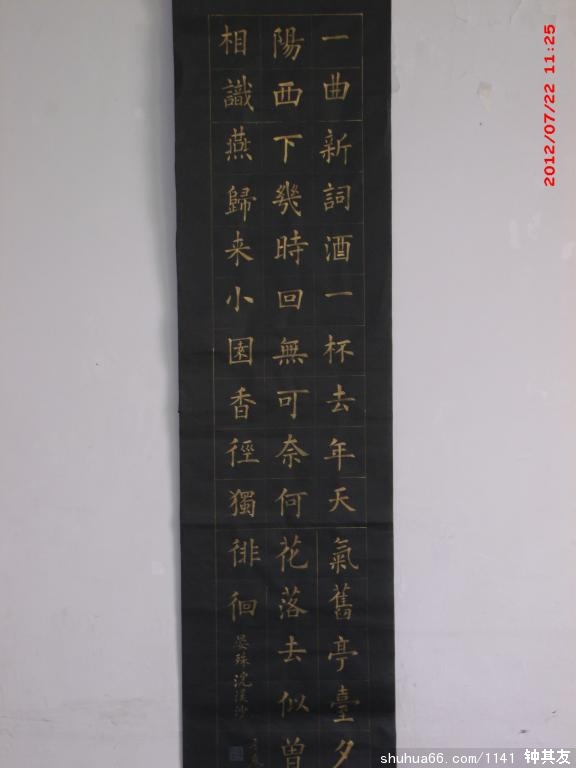 一曲新詞酒一杯去年天氣舊亭臺夕
陽西下幾時回無可奈何花落去似曾
相識燕歸来小園香徑獨徘徊
晏殊浣溪沙
2012/07/22 11:25
shuhua66.com/1141 钟其友